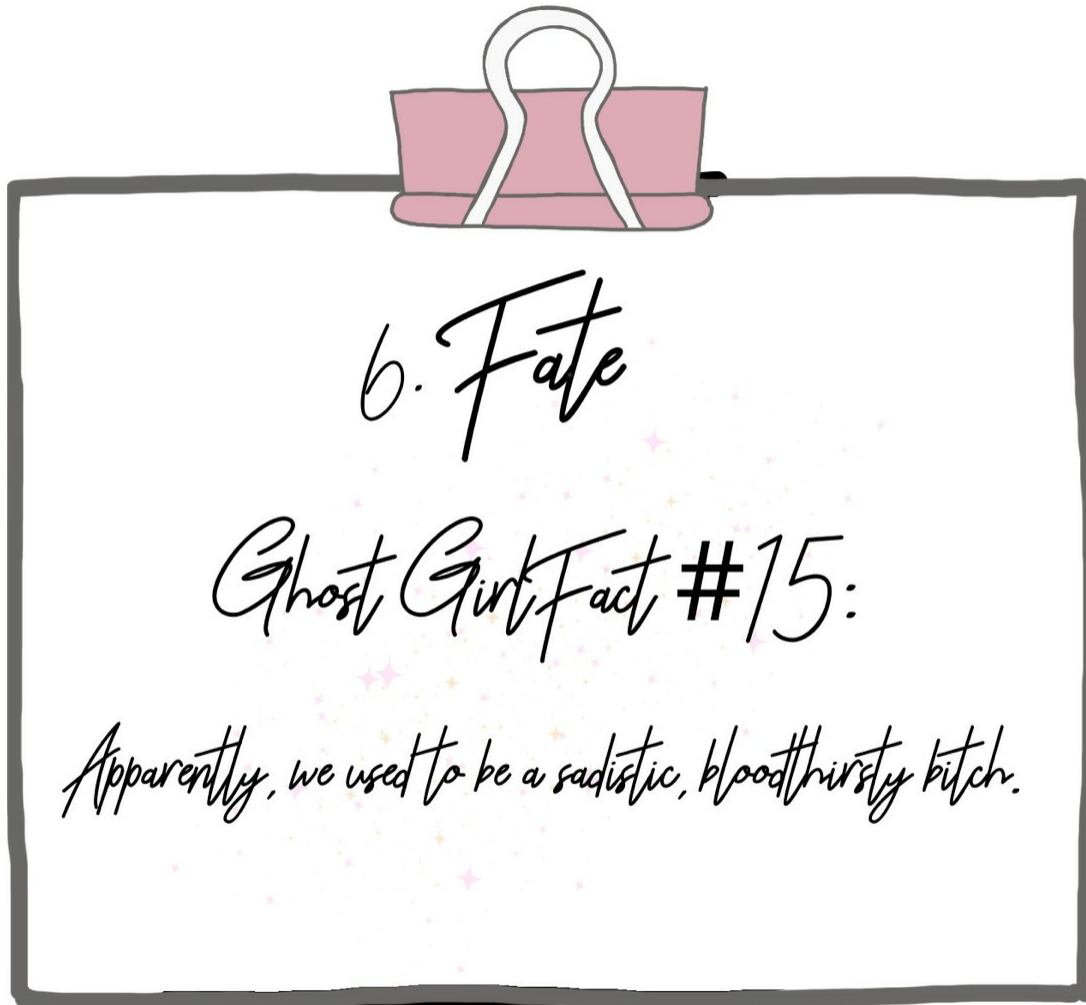 6. Fate
Ghost Girl Fact #15:
Apparently, we used to be a sadistic, bloodthirsty bitch.